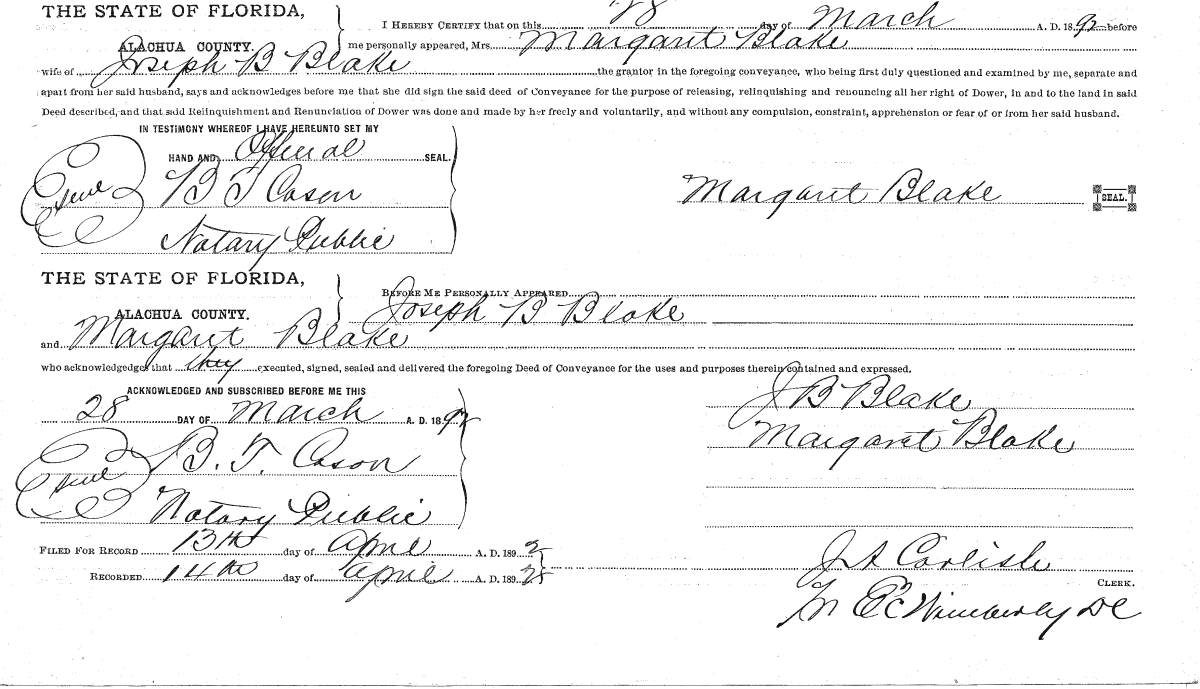 THE STATE OF FLORIDA,
ALACHUA COUNTY.
I HEREBY CERTIFY that on this 28 day of March A. D. 1892 before
me personally appeared, Mrs. Margaret Blake
wife of Joseph B Blake the grantor in the foregoing conveyance, who being first duly questioned and examined by me, separate and
apart from her said husband, says and acknowledges before me that she did sign the said deed of Conveyance for the purpose of releasing, relinquishing and renouncing all her right of Dower, in and to the land in said
Deed described, and that said Relinquishment and Renunciation of Dower was done and made by her freely and voluntarily, and without any compulsion, constraint, apprehension or fear of or from her said husband.
IN TESTIMONY WHEREOF I HAVE HEREUNTO SET MY
HAND AND Official SEAL.
Seal
B T Cason
Notary Public
Margaret Blake SEAL.
THE STATE OF FLORIDA,
ALACHUA COUNTY.
BEFORE ME PERSONALLY APPEARED
Joseph B Blake
and Margaret Blake
who acknowledged that they executed, signed, sealed and delivered the foregoing Deed of Conveyance for the uses and purposes therein contained and expressed.
ACKNOWLEDGED AND SUBSCRIBED BEFORE ME THIS
28 DAY OF March A. D. 1892
Seal
B. T. Cason
Notary Public
J B Blake
Margaret Blake
FILED FOR RECORD 13th day of April A. D. 1892
RECORDED 14th day of April A. D. 189
J A Carlisle
CLERK.
Wimberly DC